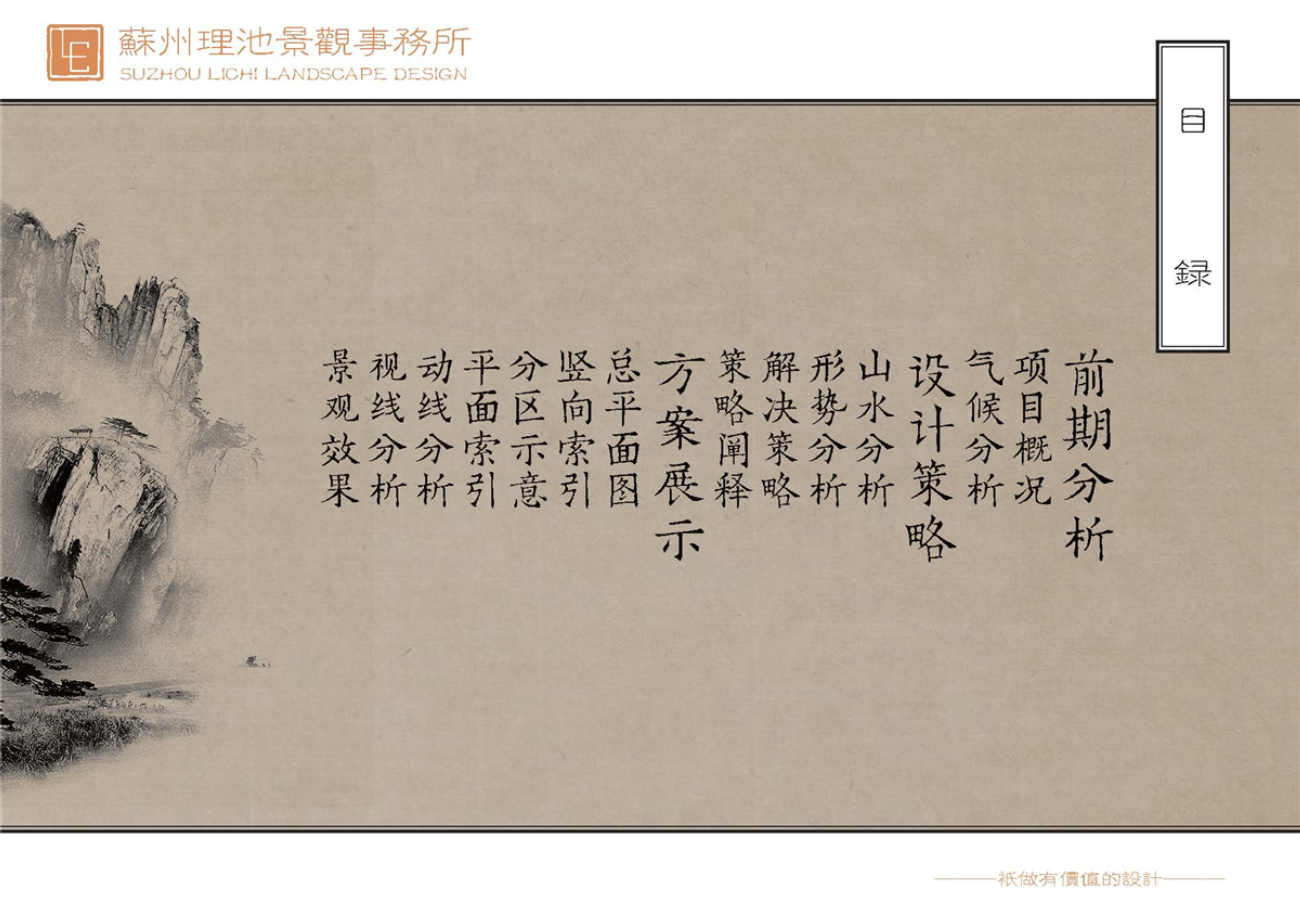 蘇州理池景觀事務所
SUZHOU LICHI LANDSCAPE DESIGN
目録
前期分析
项目概况
气候分析
设计策略
山水分析
形势分析
解决策略
策略阐释
方案展示
总平面图
竖向索引
分区示意
平面索引
动线分析
视线分析
景观效果
祇做有價值的設計